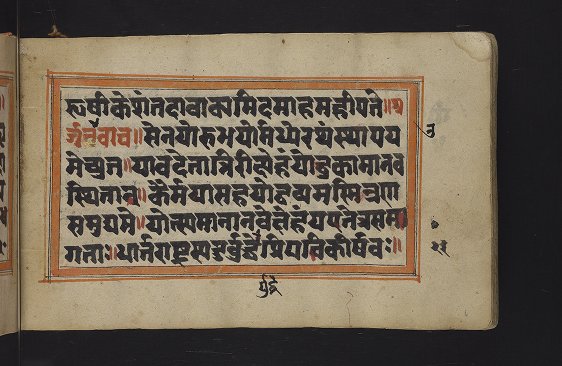 हृषीकेशंतदावाक्यमिदमाहमहीपते॥अ
र्जुनउवाच॥सेनयोरुभयोर्मध्येरथंस्थापय
मेच्युत॥यावदेतान्निरीक्षेहंयोद्धुकामानव
स्थितान्॥कैर्मयासहयोद्धव्यमस्मिन्रण
समुद्यमे॥योत्स्यमानानवेक्षेहंयएतेत्रसमा
गताः॥धार्तराष्ट्रस्यदुर्बुद्धेप्रियचिकीर्षवः॥
र्युद्धे